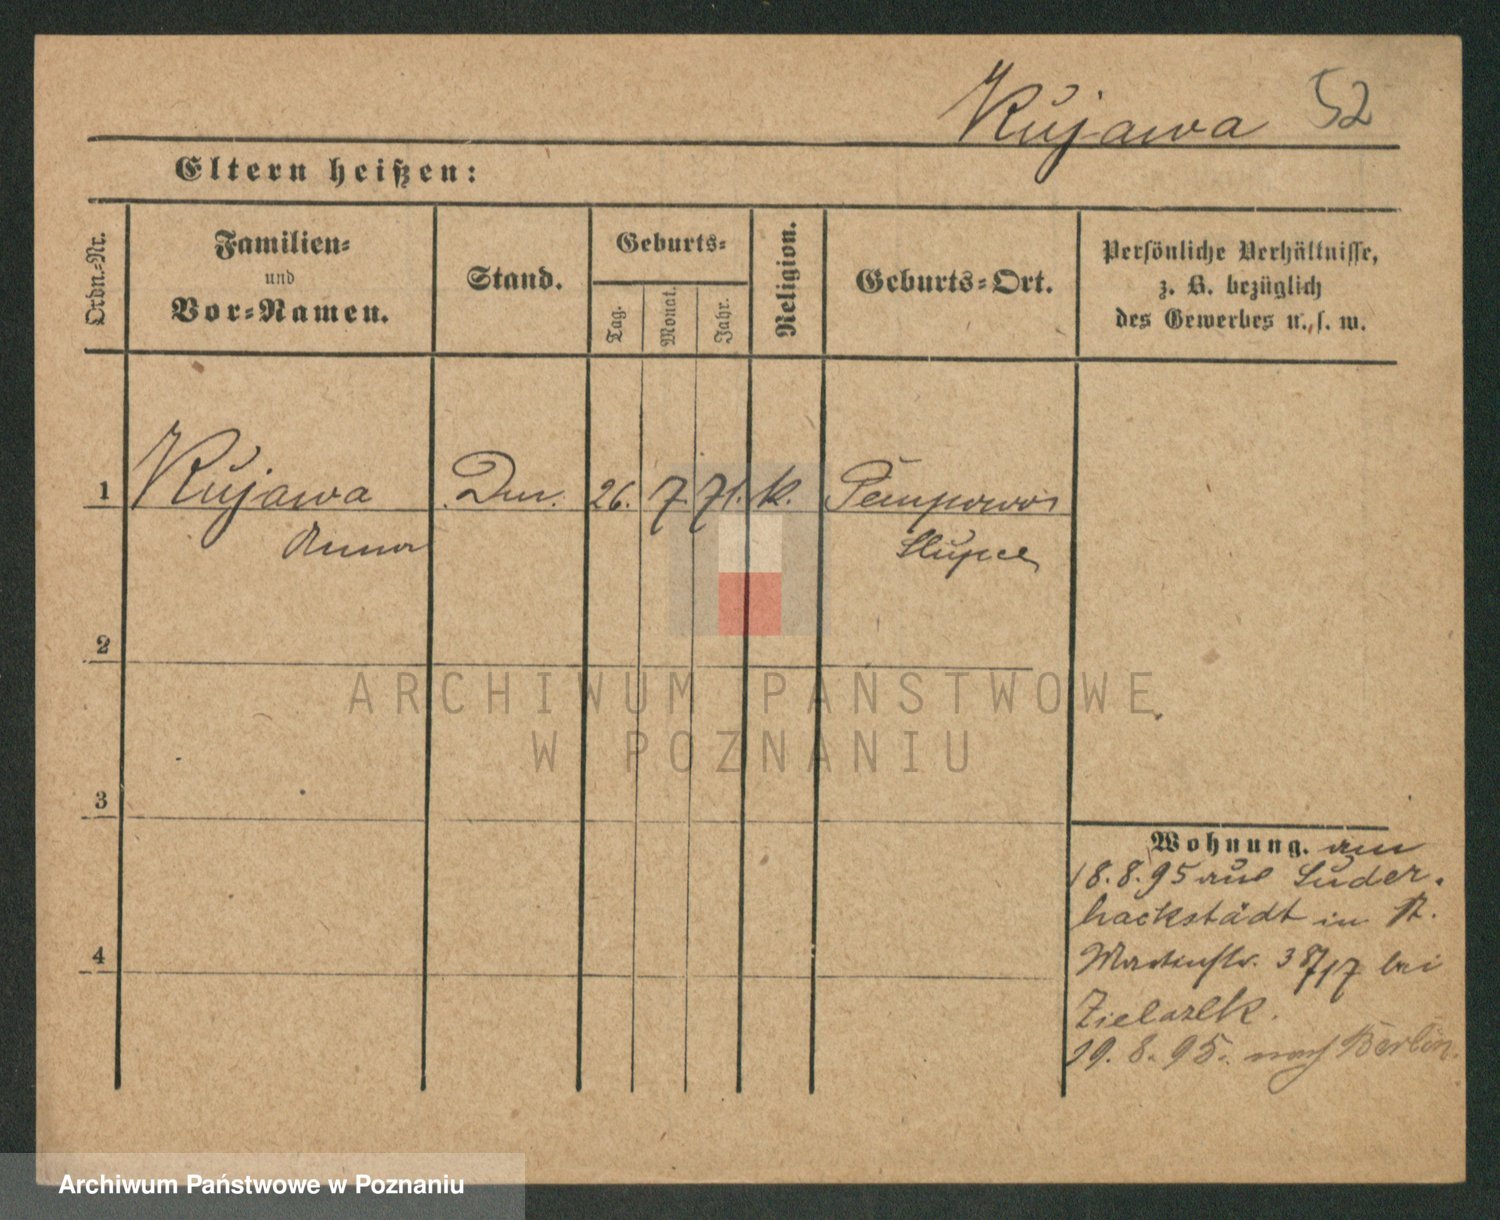 Kujawa 52
Eltern heißen:
Ordn.-Nr.
Familien-
und
Vor-Namen.
Stand.
Geburts-
Tag.
Monat.
Jahr.
Religion.
Geburts-Ort.
Persönliche Verhältnisse,
z. B. bezüglich
des Gewerbes u. s. w.
1 Kujawa 26. 7. 71. k.
Anna Slupce
2
ARCHIWUM PAŃSTWOWE
W POZNANIU
3
Wohnung. am
18.8.95 aus Süder-
hackstädt in St.
Martinstr. 38/17 bei
4
19.8.95. nach Berlin.
Archiwum Państwowe w Poznaniu